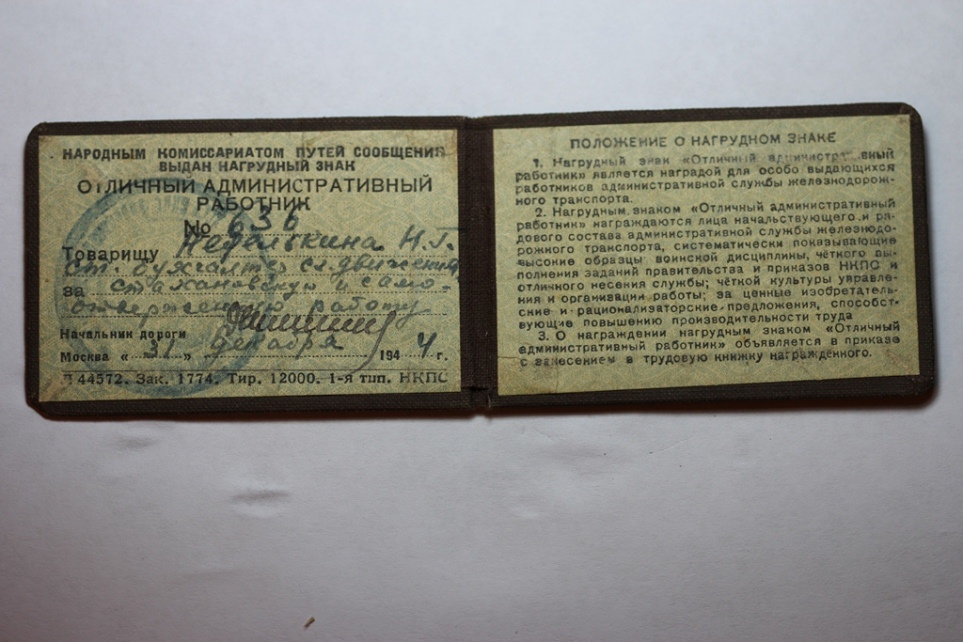 НАРОДНЫМ КОМИССАРИАТОМ ПУТЕЙ СООБЩЕНИЯ
ВЫДАН НАГРУДНЫЙ ЗНАК
ОТЛИЧНЫЙ АДМИНИСТРАТИВНЫЙ
РАБОТНИК
№ 636
Товарищу Неделькина Н.Г.
ст. бухгалтер сл. движения
за стахановскую и само-
отверженную работу
Начальник дороги
Москва « 31 » декабря 194 4 г.
44572. Зак. 1774. Тир. 12000. 1-я тип. НКПС
ПОЛОЖЕНИЕ О НАГРУДНОМ ЗНАКЕ
1. Нагрудный знак «Отличный административный
работник» является наградой для особо выдающихся
работников административной службы железнодорож-
ного транспорта.
2. Нагрудным знаком «Отличный административный
работник» награждаются лица начальствующего и ря-
дового состава административной службы железнодо-
рожного транспорта, систематически показывающие
высокие образцы воинской дисциплины, чёткого вы-
полнения заданий правительства и приказов НКПС и
отличного несения службы; чёткой культуры управле-
ния и организации работы; за ценные изобретатель-
ские и рационализаторские предложения, способст-
вующие повышению производительности труда
3. О награждении нагрудным знаком «Отличный
административный работник» объявляется в приказе
с занесением в трудовую книжку награждённого.